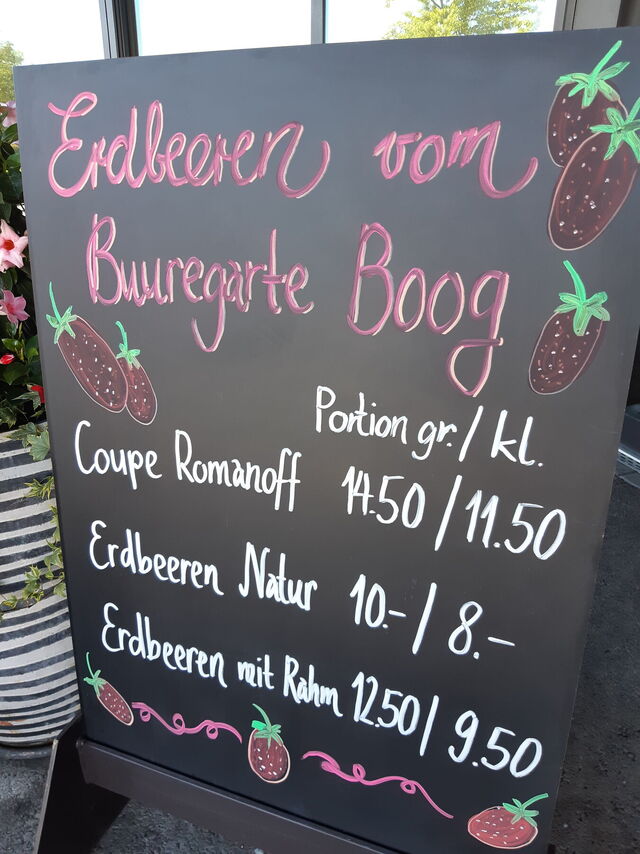 Erdbeeren vom
Buuregarte Boog
Portion gr./kl.
Coupe Romanoff 14.50/11.50
Erdbeeren Natur 10.-/8.-
Erdbeeren mit Rahm 12.50/9.50